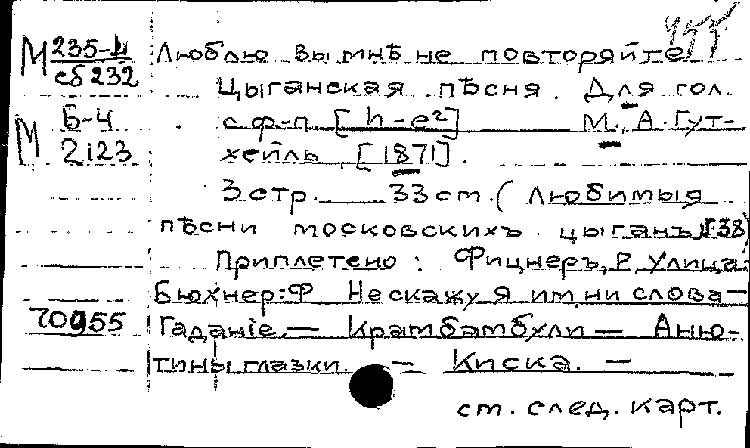 М 235-4
сб 232
М Б-4
2123
70955
Люблю вы мнѣ не повторяйте
Цыганская пѣсня. Для гол.
с ф-п [h-e²] М., А. Гут-
хейль, [1871].
3 стр. 33 см. (Любимыя
пѣсни московскихъ цыганъ 38)
Приплетено: Фицнеръ, Р Улица-
Бюхнер: Ф Не скажу я им ни слова-
Гаданіе - Крамбамбули - Аню-
тины глазки - Киска. -
см. след. карт.